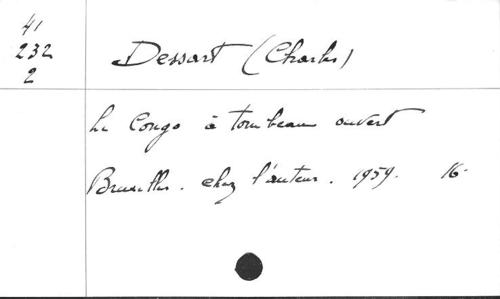 41
232
2
Dessart (Charles)
Le Congo à tombeau ouvert
Bruxelles. chez l'auteur. 1959. 16.